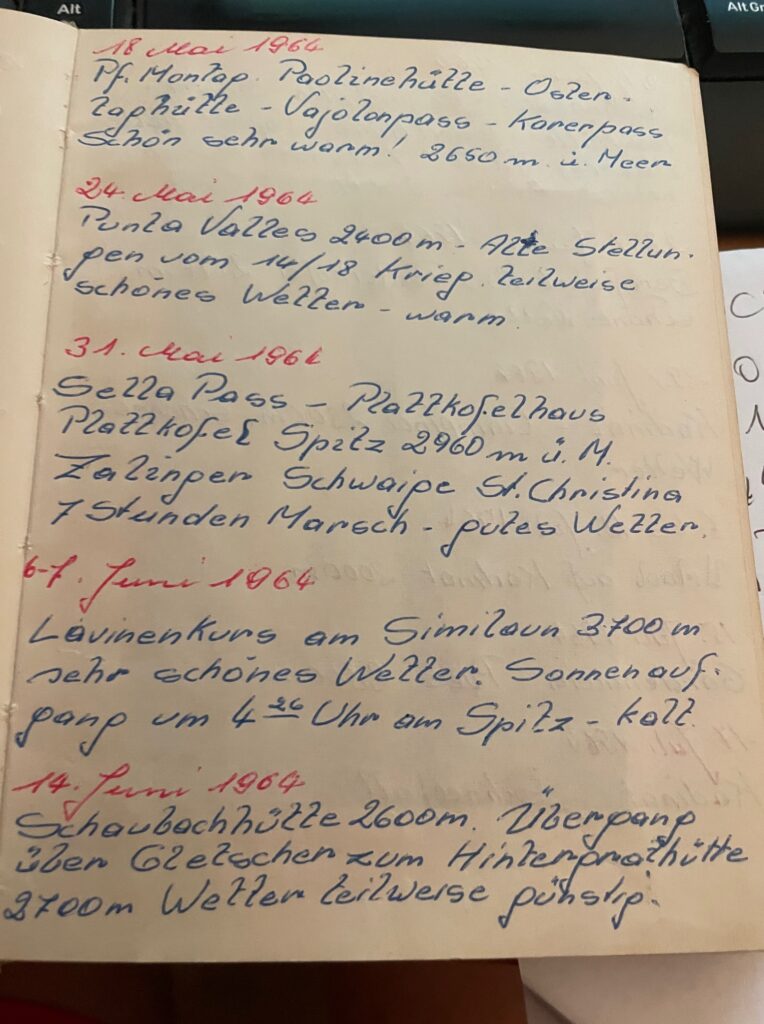 Alt
Alt Gr
18 Mai 1964
Pf. Montag. Paolinehütte - Oster-
taghütte - Vajolonpass - Karerpass
Schön sehr warm! 2650 m. ü. Meer
24. Mai 1964
Punta Valles 2400m - Alte Stellun-
gen vom 14/18 Krieg. teilweise
schönes Wetter - warm.
31. Mai 1964
Sella Pass - Plattkofelhaus
Plattkofel Spitz 2960 m ü. M.
Zalinger Schwaige St. Christina
7 Stunden Marsch - gutes Wetter.
6-7. Juni 1964
Lavinenkurs am Similaun 3700 m
sehr schönes Wetter. Sonnenauf-
gang um 4 26 Uhr am Spitz - kalt.
14. Juni 1964
Schaubachhütte 2600m. Übergang
über Gletscher zum Hintergrathütte
2700m Wetter teilweise günstig.